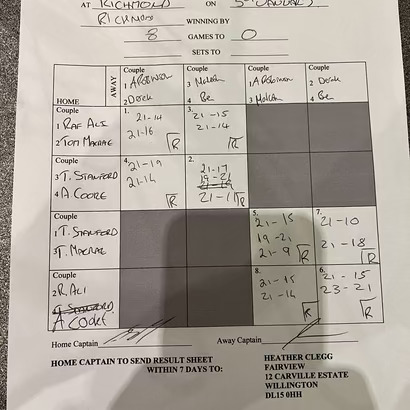 AT RICHMOND ON 5th JANUARY
RICHMOND WINNING BY
8 GAMES TO 0
SETS TO
HOME AWAY
Couple
1 A Robinson
2 Derek
Couple
3 Malcolm
4 Ben
Couple
1 A Robinson
3 Malcolm
Couple
2 Derek
4 Ben
Couple
1 RAF ALI
2 TOM MACRAE
1. 21-14
21-16
R
3. 21-15
21-14
R
Couple
3 T. STANFORD
4 A. COOKE
4. 21-19
21-14
R
2. 21-17
19-21
21-11
R
Couple
1 T. STANFORD
3 T. MACRAE
5. 21-15
19-21
21-9
R
7. 21-10
21-18
R
Couple
2 R. ALI
T. STANFORD
A COOKE
8. 21-15
21-14
R
6. 21-15
23-21
R
Home Captain
Away Captain
HOME CAPTAIN TO SEND RESULT SHEET
WITHIN 7 DAYS TO:
HEATHER CLEGG
FAIRVIEW
12 CARVILLE ESTATE
WILLINGTON
DL15 0HH